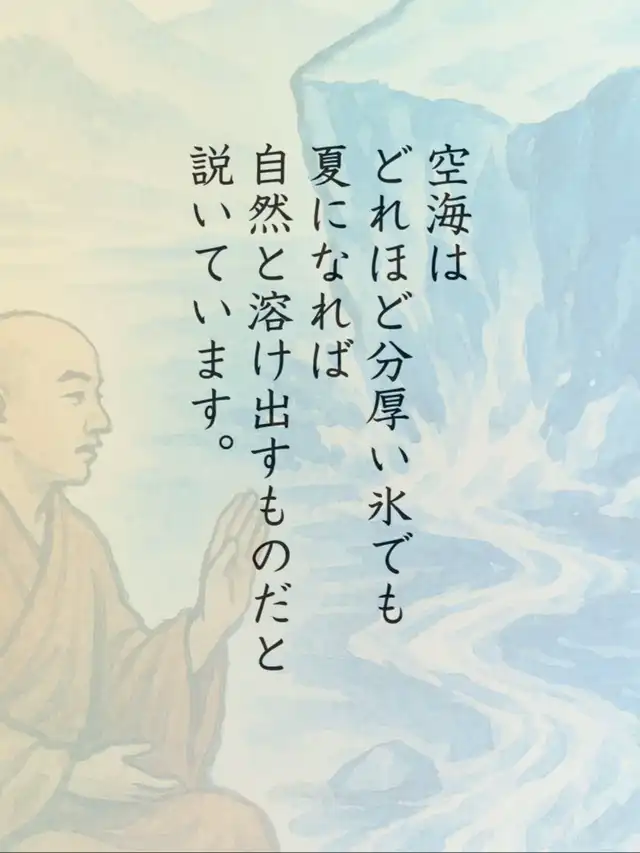 空海は
どれほど分厚い氷でも
夏になれば
自然と溶け出すものだと
説いています。